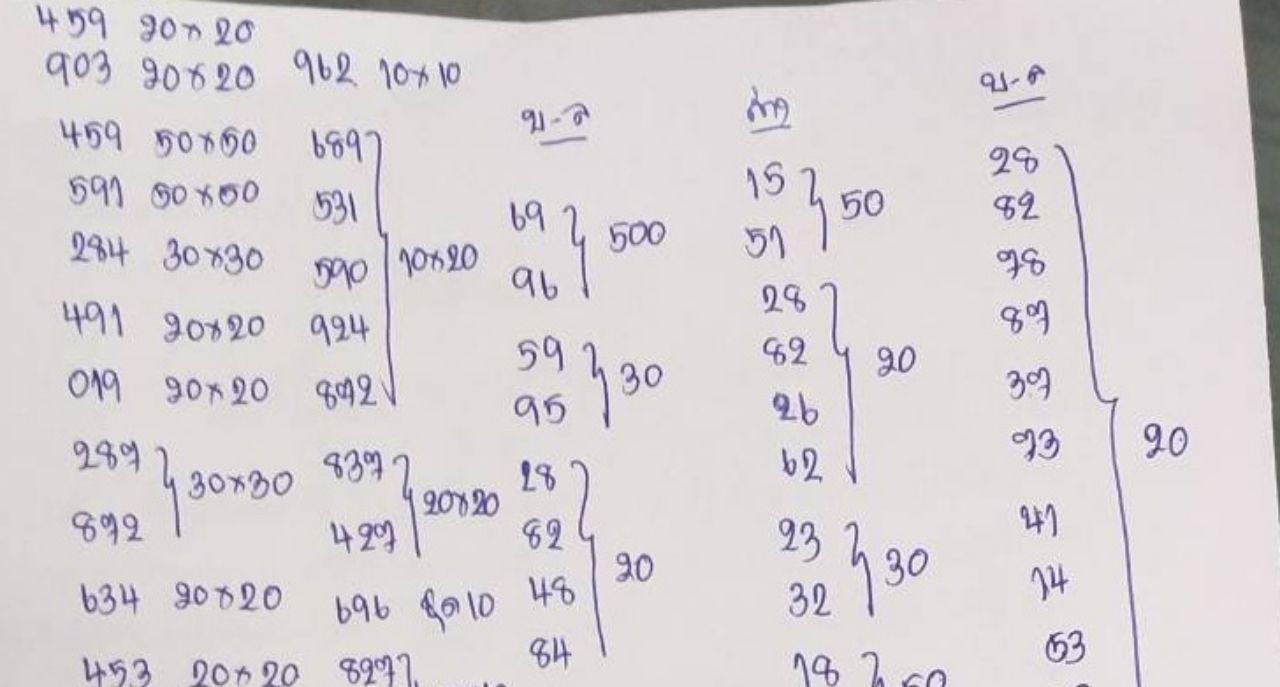 459 20×20
903 20×20 962 10×10
459 50×50
591 50×50
284 30×30
491 20×20
019 20×20
289
872 30×30
634 20×20
453 20×20
689
531
590
924
872
10×20
837
427
20×20
696 ชุด 10
827
บ-ล
69
96
500
59
95
30
28
82
48
84
20
ล่าง
15
51
50
28
82
26
62
20
23
32
30
18
50
บ-ล
28
82
78
87
37
73
41
14
53
20